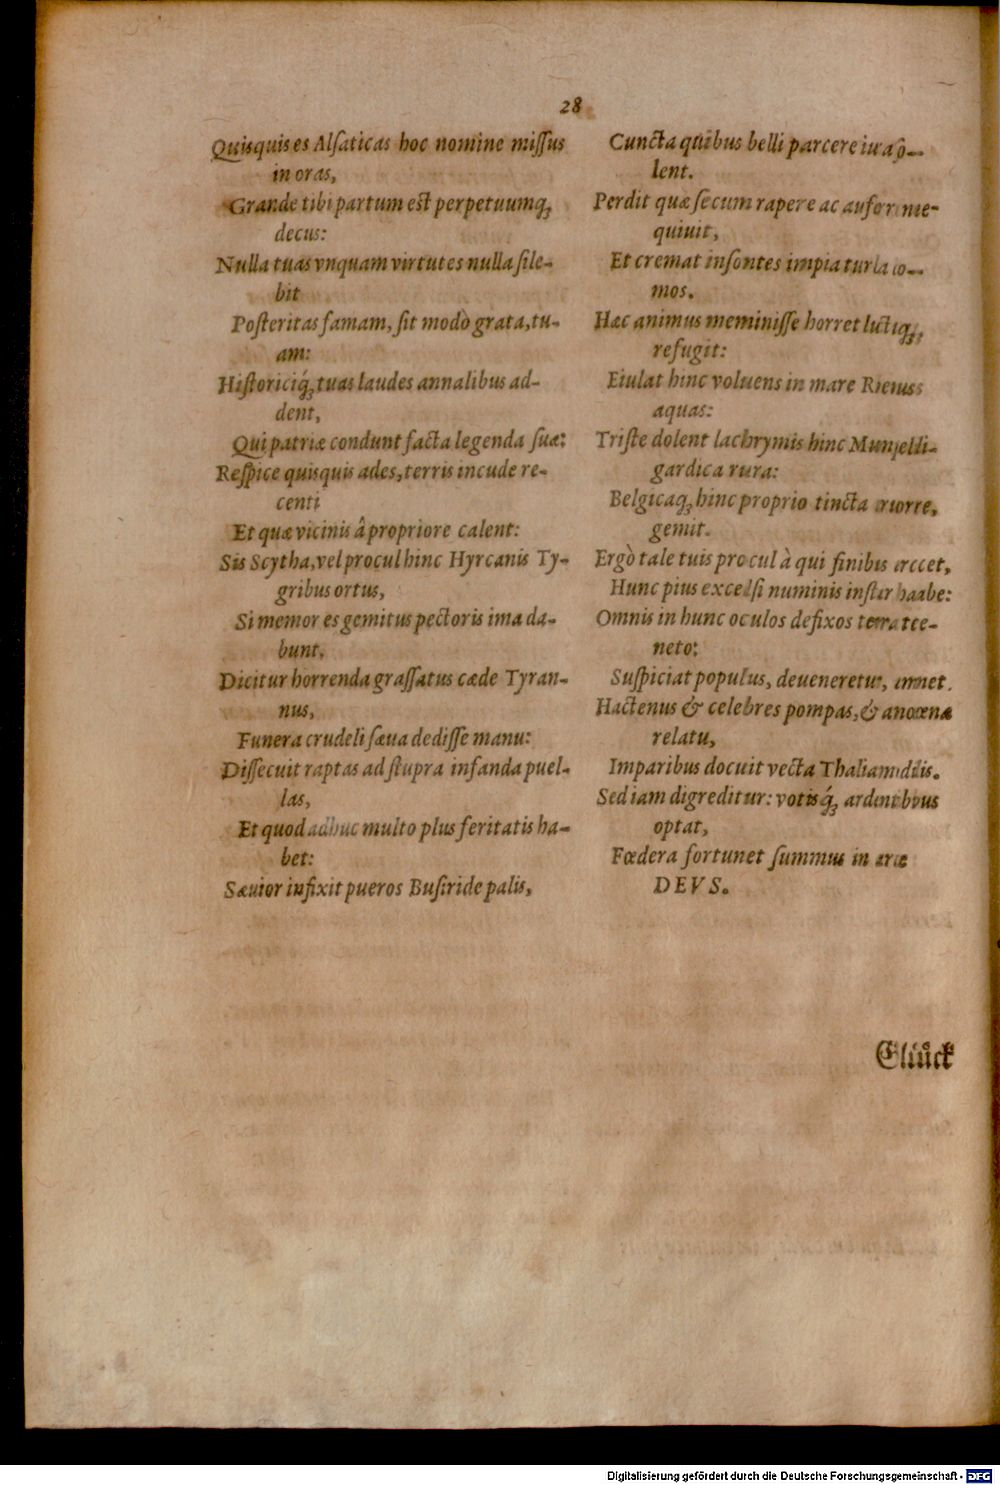 28
Quisquis es Alſaticas hoc nomine miſſus
in oras,
Grande tibi partum eſt perpetuumq́;
decus:
Nulla tuas vnquam virtutes nulla ſile-
bit
Poſteritas famam, ſit modò grata, tu-
am:
Hiſtoriciq́; tuas laudes annalibus ad-
dent,
Qui patriæ condunt facta legenda ſuæ:
Reſpice quisquis ades, terris incude re-
centi
Et quæ vicinis â propriore calent:
Sis Scytha, vel procul hinc Hyrcanis Ty-
gribus ortus,
Si memor es gemitus pectoris ima da-
bunt.
Dicitur horrenda graſſatus cæde Tyran-
nus,
Funera crudeli ſæua dediſſe manu:
Diſſecuit raptas ad ſtupra infanda puel-
las,
Et quod adhuc multo plus feritatis ha-
bet:
Sæuior infixit pueros Buſiride palis,
Cuncta quibus belli parcere iura
lent.
Perdit quæ ſecum rapere ac auferre ne-
quiuit,
Et cremat inſontes impia turba
mos.
Hæc animus meminiſſe horret luctuq́;
refugit:
Eiulat hinc voluens in mare Rhenus
aquas:
Triſte dolent lachrymis hinc
gardica rura:
Belgicaq́; hinc proprio tincta
gemit.
Ergò tale tuis procul à qui finibus arcet,
Hunc pius excelſi numinis inſtar habe:
Omnis in hunc oculos defixos terra te-
neto:
Suſpiciat populus, deueneretur, amet.
Hactenus & celebres pompas, &
relatu,
Imparibus docuit vecta Thalia
Sed iam digreditur: votisq́; ardentibus
optat,
Fœdera fortunet ſummus in
DEVS.
Glück
Digitalisierung gefördert durch die Deutsche Forschungsgemeinschaft - DFG